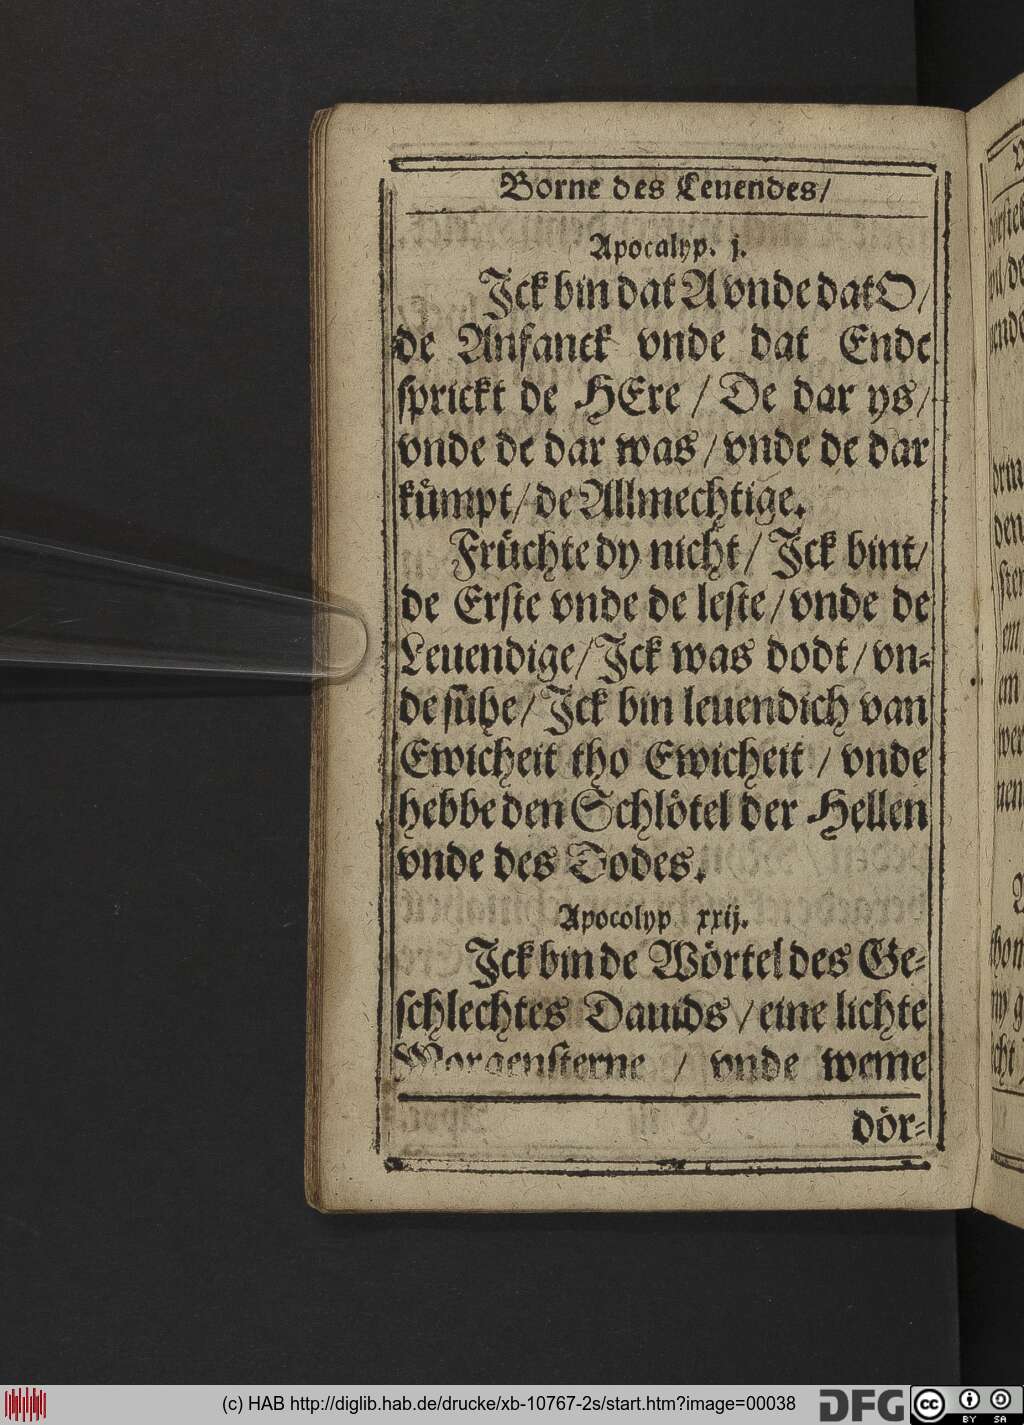 Borne des Leuendes/
Apocalyp. j.
Jck bin dat A vnde dat O/
de Anfanck vnde dat Ende
sprickt de HEre / De dar ys/
vnde de dar was/ vnde de dar
kuͤmpt/ de Allmechtige.
Fruͤchte dy nicht/ Jck bint/
de Erste vnde de leste/ vnde de
Leuendige/ Jck was dodt/ vn-
de suͤhe/ Jck bin leuendich van
Ewicheit tho Ewicheit / vnde
hebbe den Schloͤtel der Hellen
vnde des Dodes.
Apocolyp xxij.
Jck bin de Woͤrtel des Ge-
schlechtes Dauids / eine lichte
Morgensterne / vnde weme
doͤr-
(c) HAB http://diglib.hab.de/drucke/xb-10767-2s/start.htm?image=00038
DFG
cc BY SA